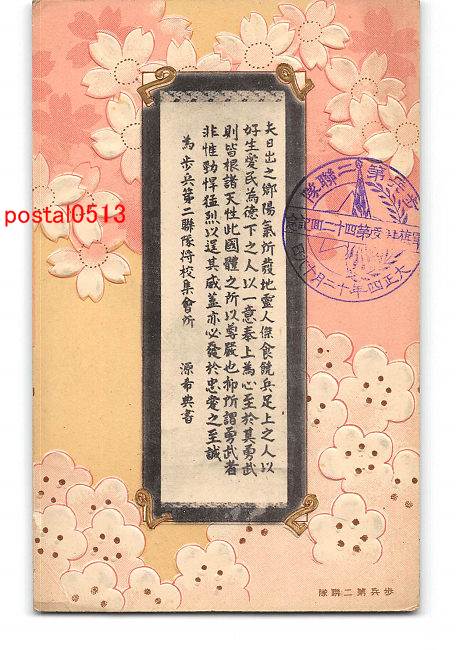 夫日出之鄉陽氣所發地靈人傑食饒兵足上之人以
好生愛民為德下之人以一意奉上為心至於其勇武
則皆根諸天性此國體之所以尊嚴也抑所謂勇武者
非惟勁悍猛烈以逞其威蓋亦必發於忠愛之至誠
為步兵第二聯隊將校集會所
源希典書
步兵第二聯隊
第四十二回記
大正四年十二月
postal0513
歩兵第二聯隊